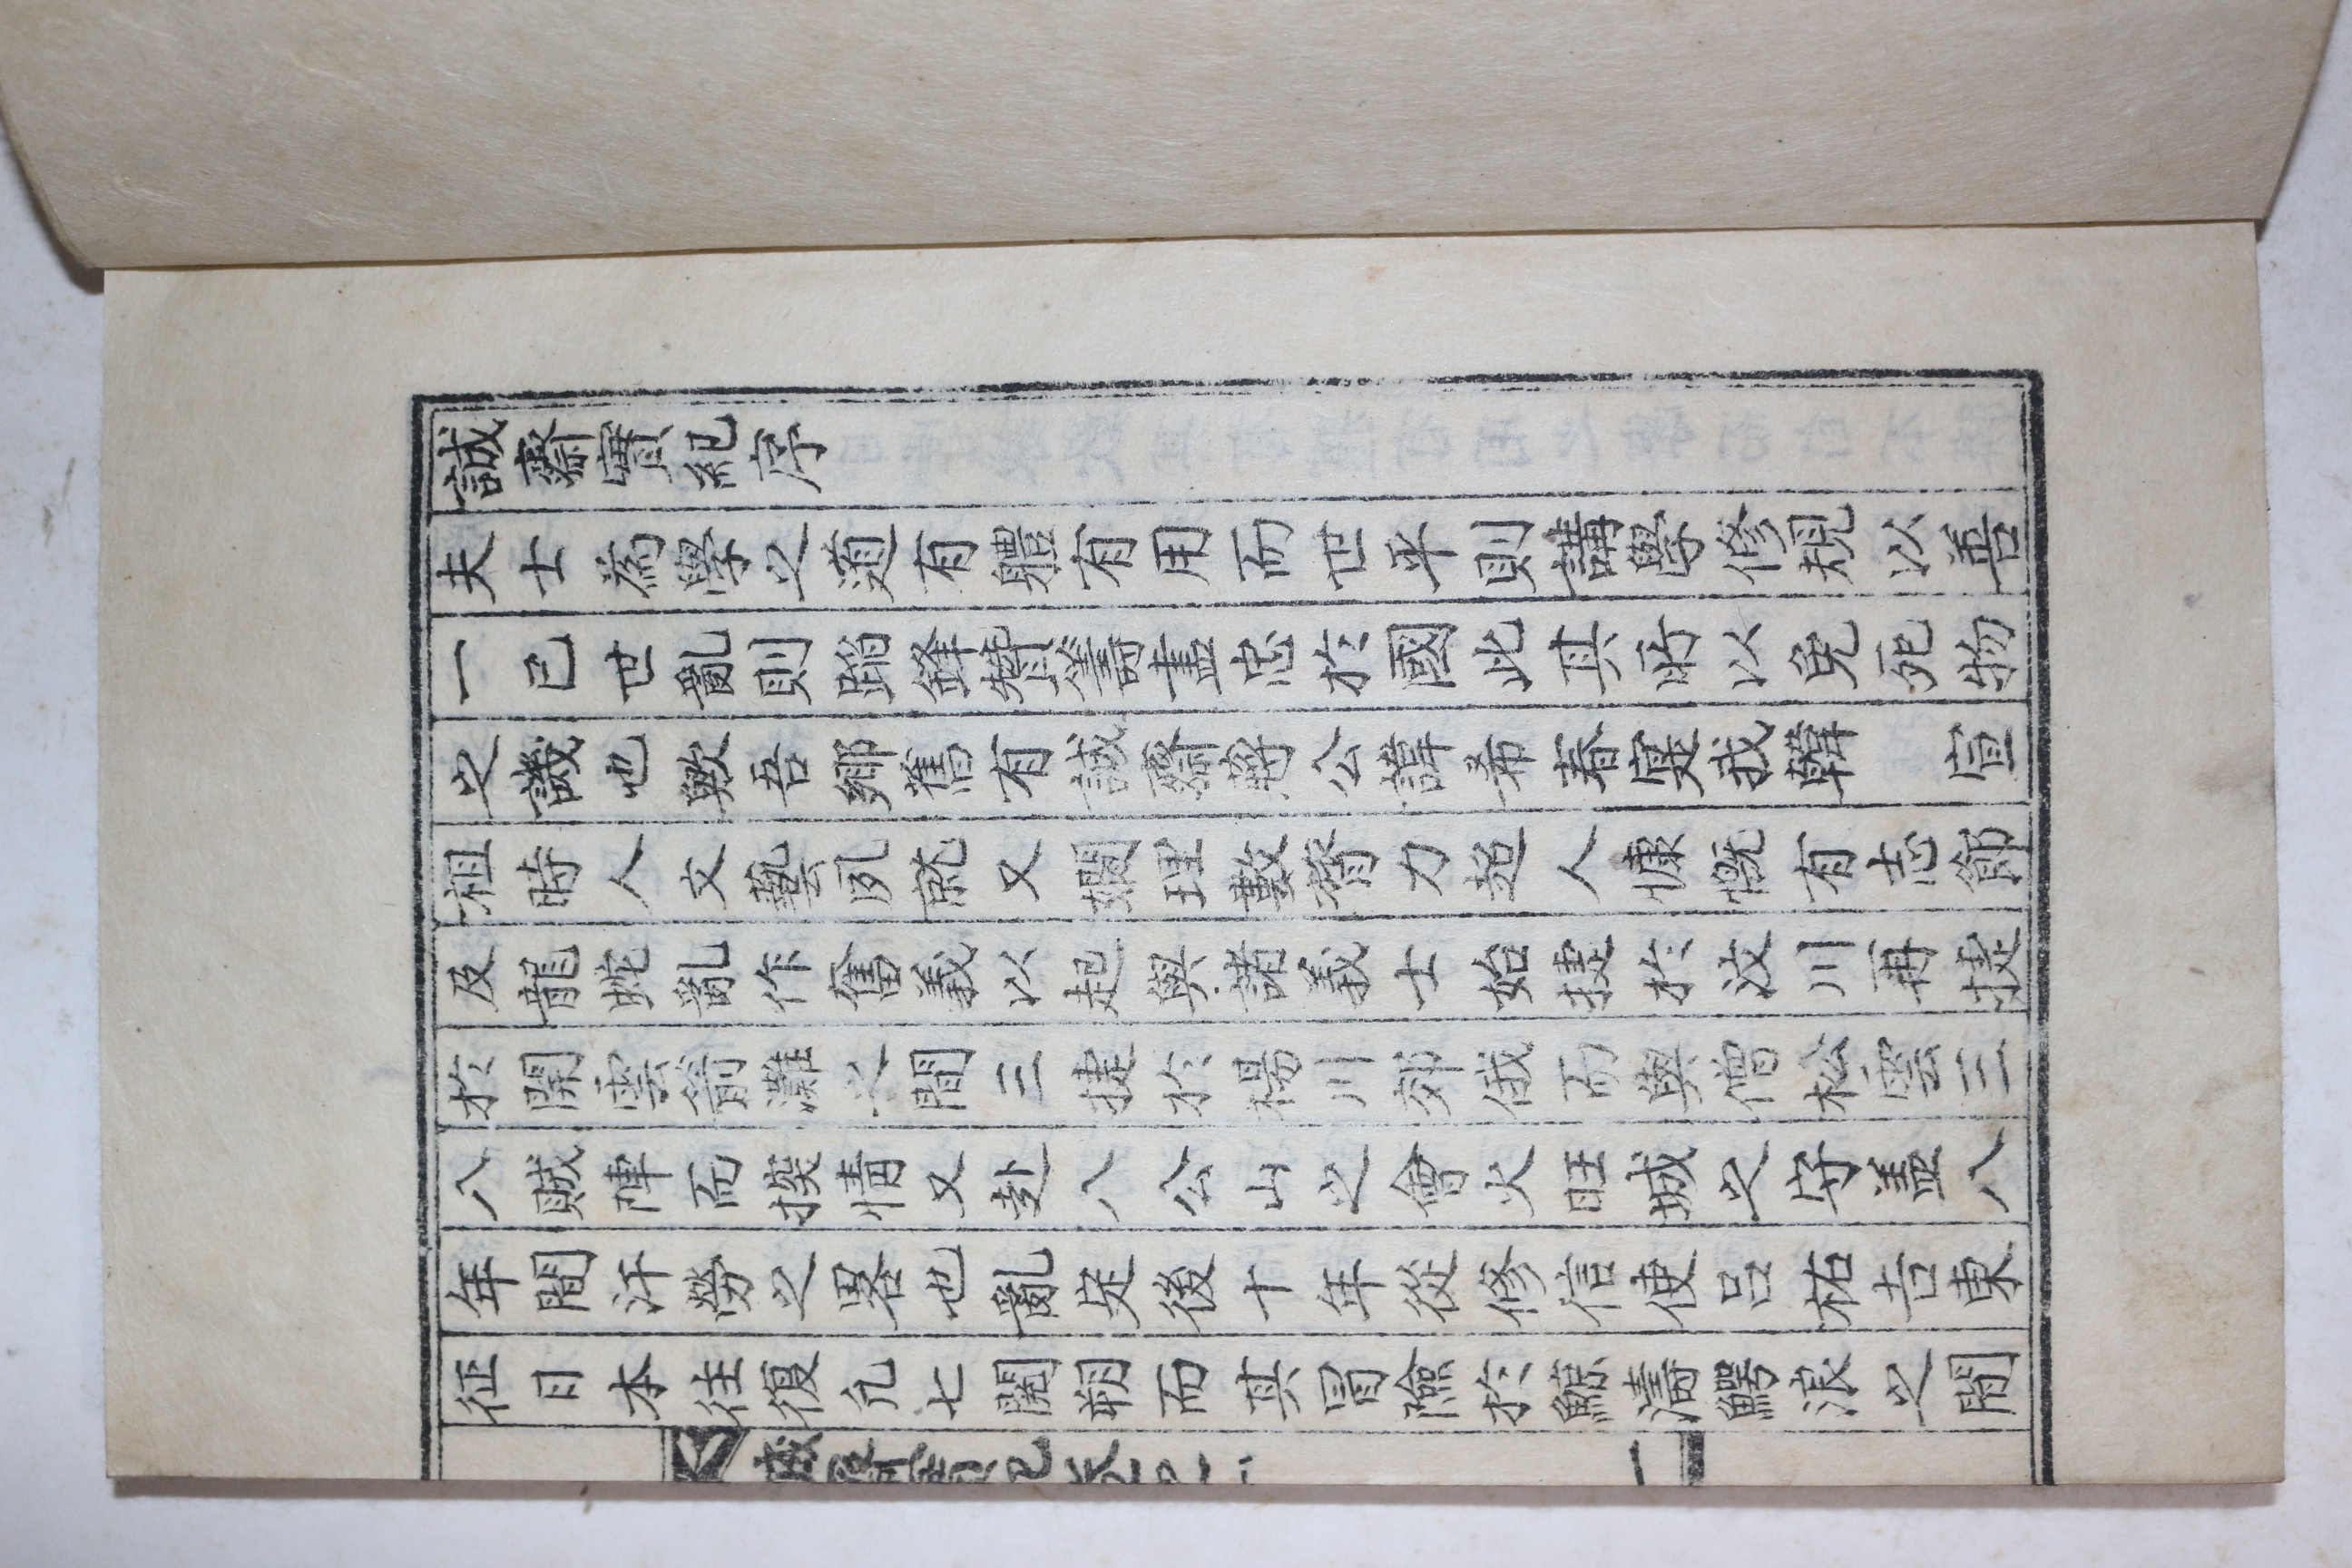 誠齋實紀序
夫士為學之道有體有用而世平則講學修規以善
一己世亂則蹈鋒贊籌盡忠於國此其所以免死物
之譏也歟吾鄉舊有誠齋蔣公諱希春寔我韓 宣
祖時人文藝夙就又嫺理數膂力超人慷慨有志節
及龍蛇亂作奮義以起與諸義士始捷於汶川再捷
於開雲箭灘之間三捷於楊川郊俄而與僧松雲三
入賊陣而探情又赴八公山之會火旺城之守盖八
年間汗勞之畧也亂定後十年從修信使呂祐吉東
征日本往復凢七閱朔而其冒險於鯨濤鱷浪之間
誠齋實紀卷之
一